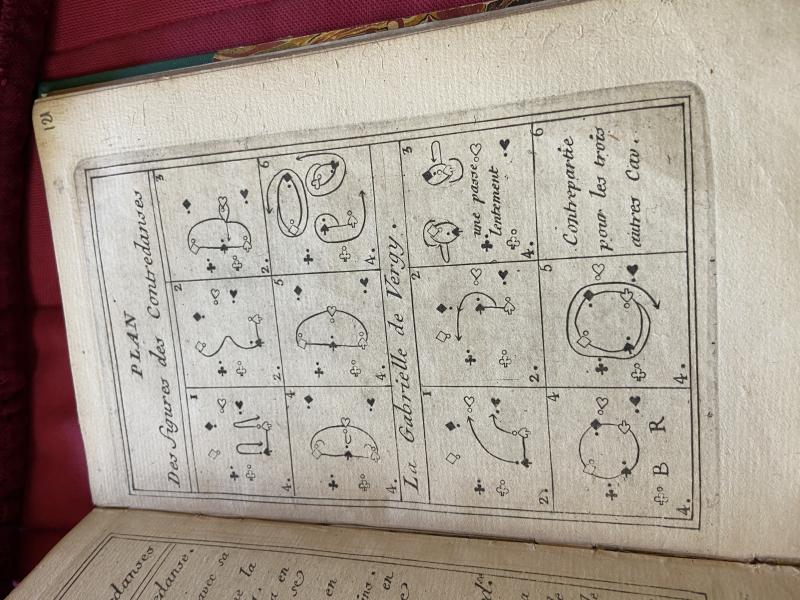 121
PLAN
Des figures des Contredanses
1 2 3
4. 2. 2.
4 5 6
4. 4. 4.
La Gabrielle de Vergy.
1 2 3
une passe
lentement
2. 2. 4.
4 5 6
Contrepartie
pour les trois
autres Cav.
B R
4. 4.
danses
edanse.
avec sa
e la
a en
en